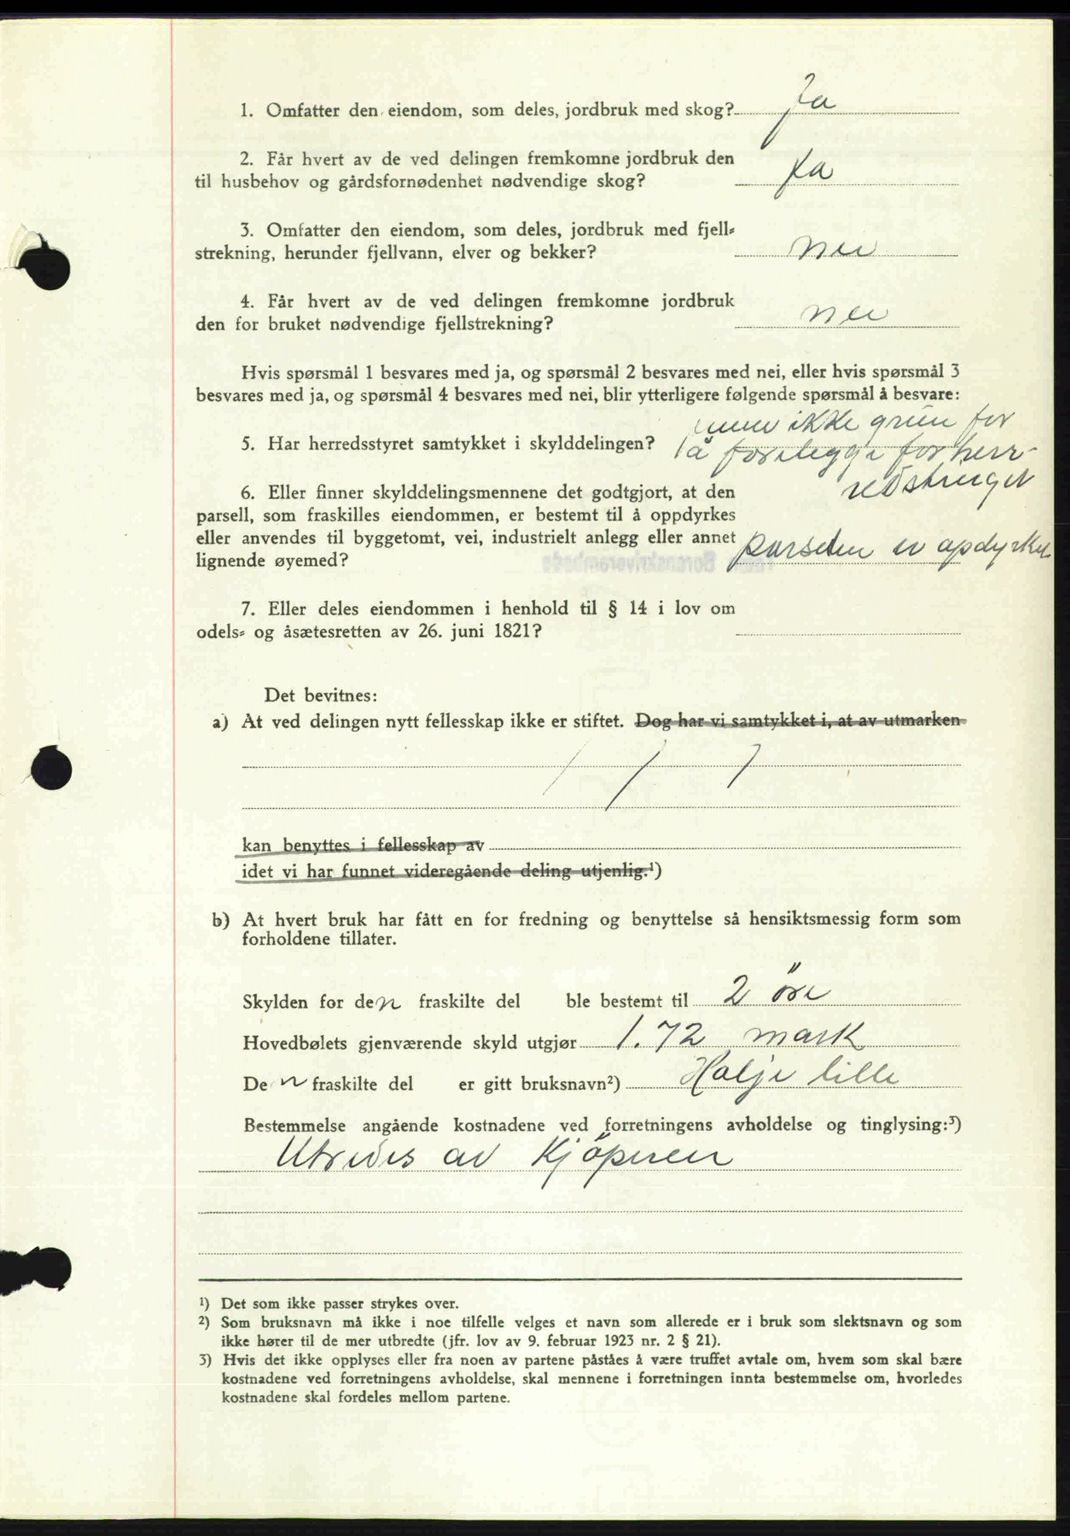 1. Omfatter den eiendom, som deles, jordbruk med skog? Ja
2. Får hvert av de ved delingen fremkomne jordbruk den
til husbehov og gårdsfornødenhet nødvendige skog? Ja
3. Omfatter den eiendom, som deles, jordbruk med fjell-
strekning, herunder fjellvann, elver og bekker? nei
4. Får hvert av de ved delingen fremkomne jordbruk
den for bruket nødvendige fjellstrekning? nei
Hvis spørsmål 1 besvares med ja, og spørsmål 2 besvares med nei, eller hvis spørsmål 3
besvares med ja, og spørsmål 4 besvares med nei, blir ytterligere følgende spørsmål å besvare:
ikke grun for
5. Har herredsstyret samtykket i skylddelingen? å forelegge for herr-
edstyret
6. Eller finner skylddelingsmennene det godtgjort, at den
parsell, som fraskilles eiendommen, er bestemt til å oppdyrkes
eller anvendes til byggetomt, vei, industrielt anlegg eller annet
lignende øyemed? parselen er opdyrket
7. Eller deles eiendommen i henhold til § 14 i lov om
odels- og åsætesretten av 26. juni 1821?
Det bevitnes:
a) At ved delingen nytt fellesskap ikke er stiftet. Dog har vi samtykket i, at av utmarken
kan benyttes i fellesskap av
idet vi har funnet videregående deling utjenlig.¹)
b) At hvert bruk har fått en for fredning og benyttelse så hensiktsmessig form som
forholdene tillater.
Skylden for den fraskilte del ble bestemt til 2 öre
Hovedbølets gjenværende skyld utgjør 1.72 mark
De n fraskilte del er gitt bruksnavn²) Holje lille
Bestemmelse angående kostnadene ved forretningens avholdelse og tinglysing:³)
Utredes av Kjöperen
¹) Det som ikke passer strykes over.
²) Som bruksnavn må ikke i noe tilfelle velges et navn som allerede er i bruk som slektsnavn og som
ikke hører til de mer utbredte (jfr. lov av 9. februar 1923 nr. 2 § 21).
3) Hvis det ikke opplyses eller fra noen av partene påståes å være truffet avtale om, hvem som skal bære
kostnadene ved forretningens avholdelse, skal mennene i forretningen innta bestemmelse om, hvorledes
kostnadene skal fordeles mellom partene.